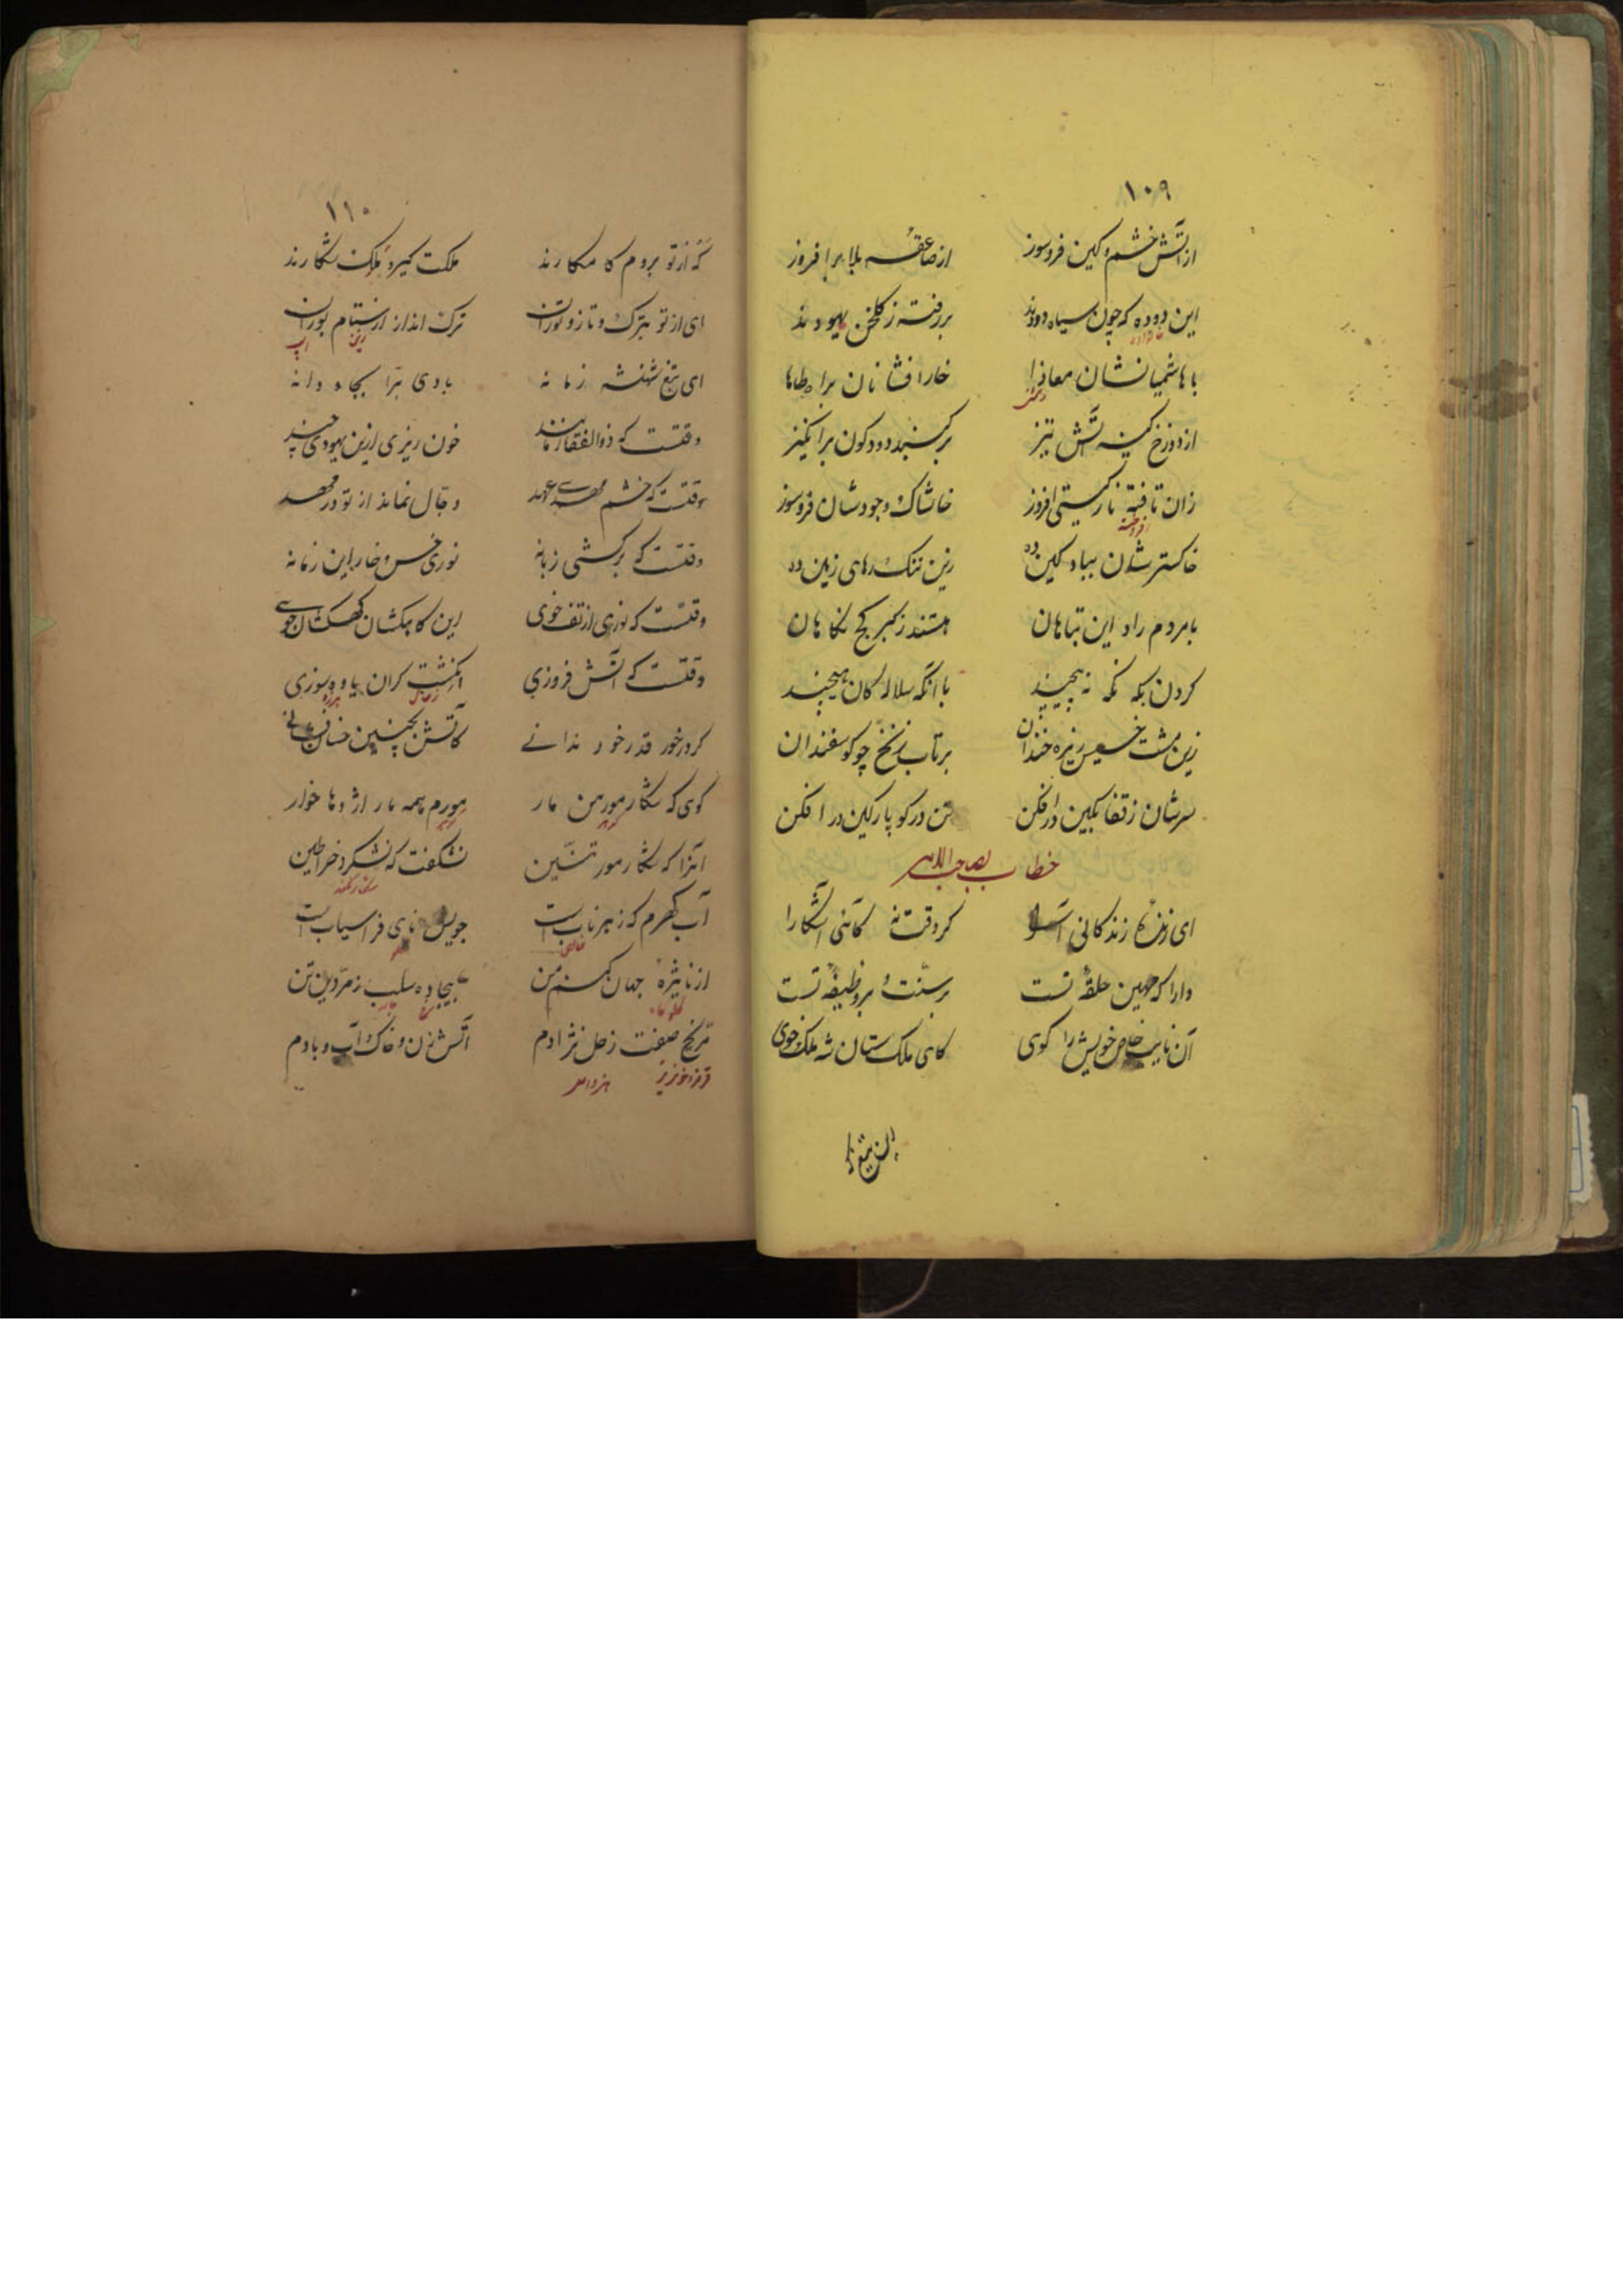 ۱۰۹
از آتش خشم و کین فروسوز از صاعقه بلا برافروز
این دوده که چون سیاه دودند بررفته ز گلخن یهودند
خانواده
با هاشمیانشان معاذا خارافشانان براه طاها
دشمنی
از دوزخ کینه آتش تیز بر گنبد دودگون برانگیز
زان تافته نار گیتی افروز خاشاک وجودشان فروسوز
افروخته
خاکسترشان بباد کین ده زین ننک رهای زمین ده
بامردم راد این تباهان هستند ز کبر کج نکاهان
کردن بکه نکه نه پیچیند با آنکه سلاله کان هیچند
زین مشت خسیس ریزه خندان برتاب زنخ چو کوسفندان
سرشان ز قفا بکین درافکن تن در کو پارکین در افکن
خطاب بصاحب الامر
ای زندگانی کز وقت نه کآئی آشکارا
دارا که مهین حلقه تست بر سنت و بر وظیفه تست
آن نایب خاص خویش را کوی کای ملک ستان شه ملک خوی
این تیغ
۱۱۰
که از تو بروم کامکارند ملکت کیر و ملک شکارند
ای از تو بترک و تاز و توران ترک انداز از ستام بوران
زین اسب
ای تیغ شهنشه زمانه بادی تو بجا و دانه
وقتست که ذوالفقار مانند خون ریزی ازین یهودی چند
وقتست که خشم مهدی عهد دجال نماند از تو در مهد
وقتست که برکشی زبانه نوری خس و خار این زمانه
وقتست که نوری از تف خوی این کاهکشان کهکشان جوی
وقتست که آتش فروزی انکشت کران یاوه سوزی
زغال هرزه
کر درخور قدر خود ندانی کاتش بچنین خسان فشانی
کوی که شکار مور من مار مورم همه مار اژدها خوار
گوهر
آنرا که شکار مور تنّین نشکفت که نشکرد خراطین
شکار نکند
آب کهرم که زهر ناب است جویش نای فراسیاب است
خالص گلو
از نایژه جهان کنم من بیجاده سلب زمردین تن
گلوگاه
مریخ صفت زحل نژادم آتش زن و خاک آب و بادم